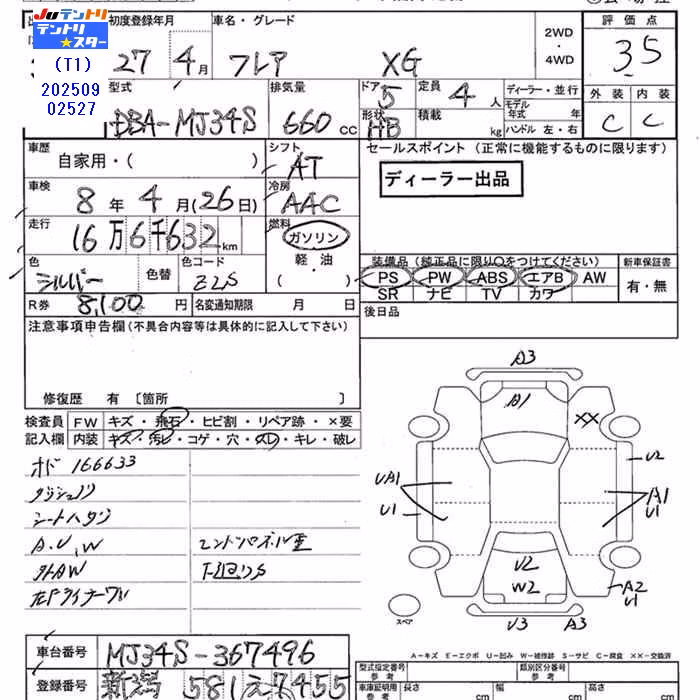 Juテントリ
テントリ
★スター
(T1)
202509
02527
初度登録年月
車名・グレード
2WD
・
4WD
評価点
27年 4月
フレア XG
3.5
型式
排気量
ドア
定員
ディーラー・並行
外装
内装
DBA-MJ34S
660 cc
5
4 人
モデル
年式 年
C
C
形状
積載
HB
kg
ハンドル 左・右
車歴
シフト
セールスポイント (正常に機能するものに限ります)
自家用・( )
AT
ディーラー出品
車検
冷房
8年 4月(26日)
AAC
走行
燃料
16万6千632km
ガソリン
軽・油
( )
色
色替
色コード
シルバー
Z2S
装備品 (純正品に限り〇をつけてください)
新車保証書
PS PW ABS エアB AW
有・無
SR ナビ TV カワ
R券
8,100円
名変通知期限 月 日
後日品
注意事項申告欄(不具合内容等は具体的に記入して下さい)
修復歴 有 〔箇所 〕
検査員
記入欄
FW キズ・飛石・ヒビ割・リペア跡・×要
内装 キズ・汚レ・コゲ・穴・スレ・キレ・破レ
オド 166633
シートハタジ
A.U.W
外AW
下廻りS
A3
A1
XX
U2
UA1
U1
A1
U1
U2
W2
A2
U1
U3
A3
スペア
A-キズ E-エクボ U-凹み W-補修跡 S-サビ C-腐食 XX-交換済
車台番号
MJ34S-367496
登録番号
新潟 581 え 7455
型式指定番号
参考
類別区分番号
参考
車庫証明用
参考
長さ cm
幅 cm
高さ cm